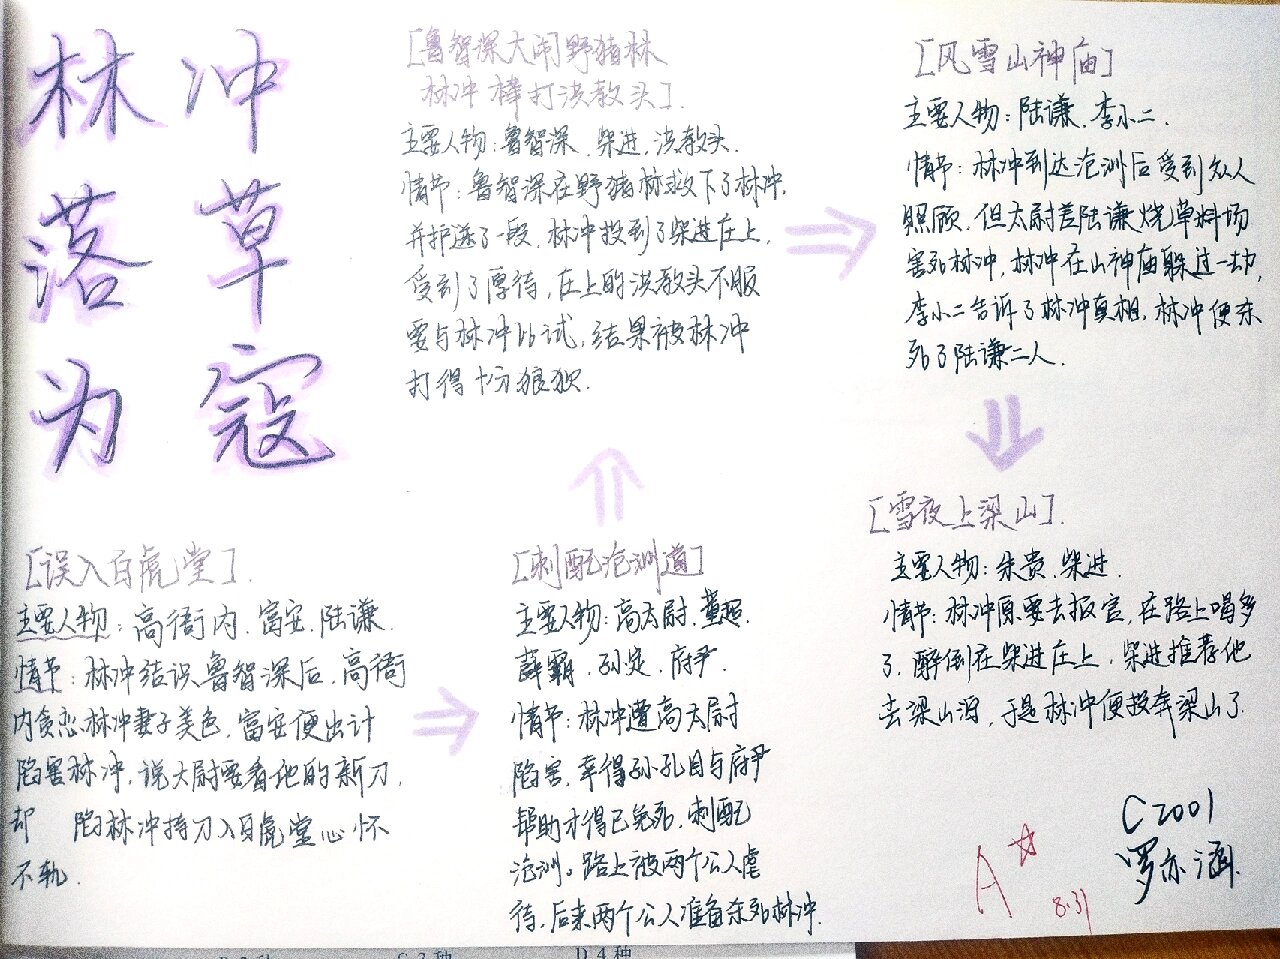 林冲
落草
为寇
[误入白虎堂].
主要人物：高衙内、富安、陆谦
情节：林冲结识鲁智深后，高衙
内贪恋林冲妻子美色，富安便出计
陷害林冲，说太尉要看他的新刀，
却 陷林冲持刀入白虎堂心怀
不轨.
[刺配沧洲道]
主要人物：高太尉、董超、
薛霸、孙定、府尹.
情节：林冲遭高太尉
陷害，幸得孙孔目与府尹
帮助才得已免死，刺配
沧洲。路上被两个公人虐
待，后来两个公人准备杀死林冲.
[鲁智深大闹野猪林
林冲棒打洪教头].
主要人物：鲁智深、柴进、洪教头.
情节：鲁智深在野猪林救下了林冲，
并护送了一段，林冲投到了柴进庄上，
受到了厚待，庄上的洪教头不服
要与林冲比试，结果被林冲
打得十分狼狈.
[风雪山神庙]
主要人物：陆谦、李小二.
情节：林冲到达沧洲后受到众人
照顾，但太尉差陆谦烧草料场
害死林冲，林冲在山神庙躲过一劫，
李小二告诉了林冲真相，林冲便杀
死了陆谦二人.
[雪夜上梁山].
主要人物：朱贵、柴进.
情节：林冲原要去报官，在路上喝多
了，醉倒在柴进庄上，柴进推荐他
去梁山泊，于是林冲便投奔梁山了.
C2001
罗亦涵
A☆
8.31
D.4种